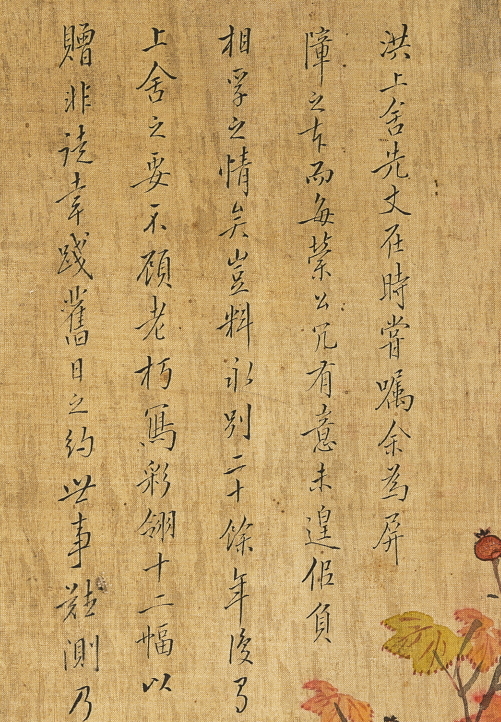 洪上舍先丈在時嘗嘱余為屏
障之寄而每縈公冗有意未遑但負
相孚之情矣豈料永別二十餘年後為
上舍之要不顧老朽寫彩翎十二幅以
贈非遶幸踐舊日之約世事難測乃